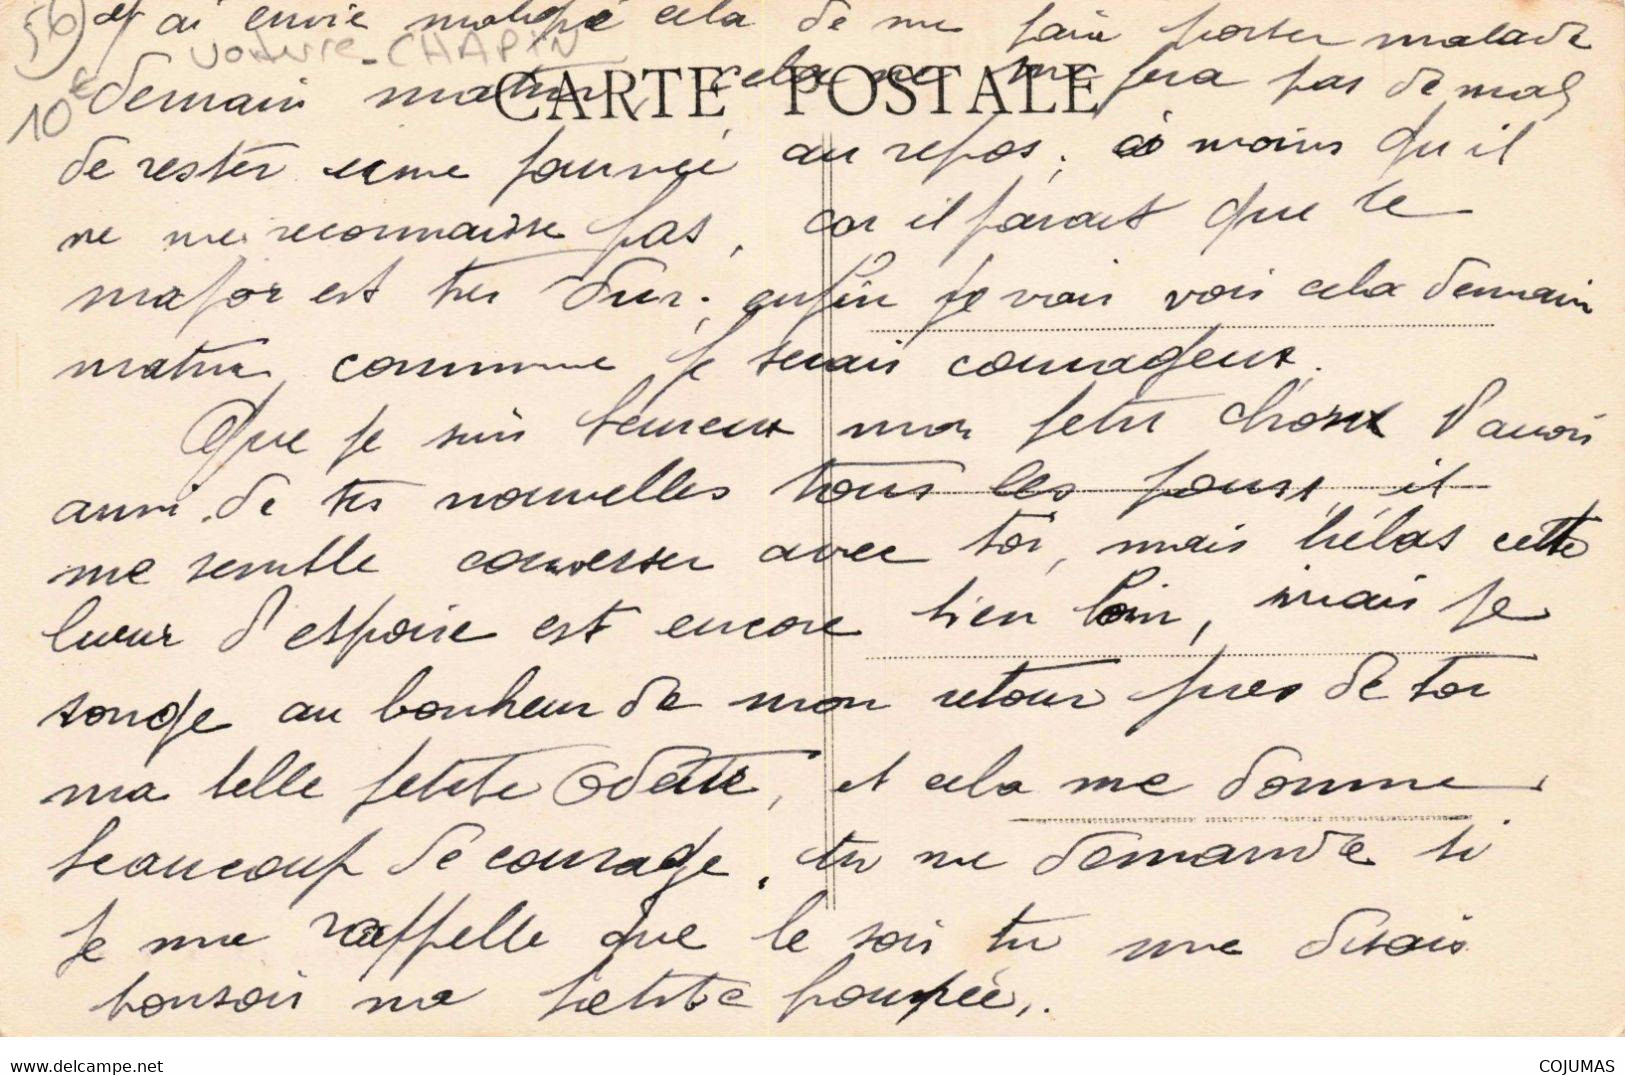 56) et j'ai envie malgré cela de me faire porter malade
voiture - CHAPIN
10€
CARTE POSTALE
demain matin, cela ne me fera pas de mal
de rester une journée au repos, à moins qu'il
ne me reconnaisse pas, car il parait que le
major est très dur, enfin je vais voir cela demain
matin, comme je serais courageux.
Que je suis heureux mon petit chou d'avoir
aussi de tes nouvelles tous les jours, il
me semble converser avec toi, mais hélas cette
lueur d'espoir est encore bien loin, mais je
songe au bonheur de mon retour près de toi
ma belle petite Odette, et cela me donne
beaucoup de courage, tu me demande si
je me rappelle que le soir tu me disais
bonsoir ma petite poupée,.
www.delcampe.net
COJUMAS